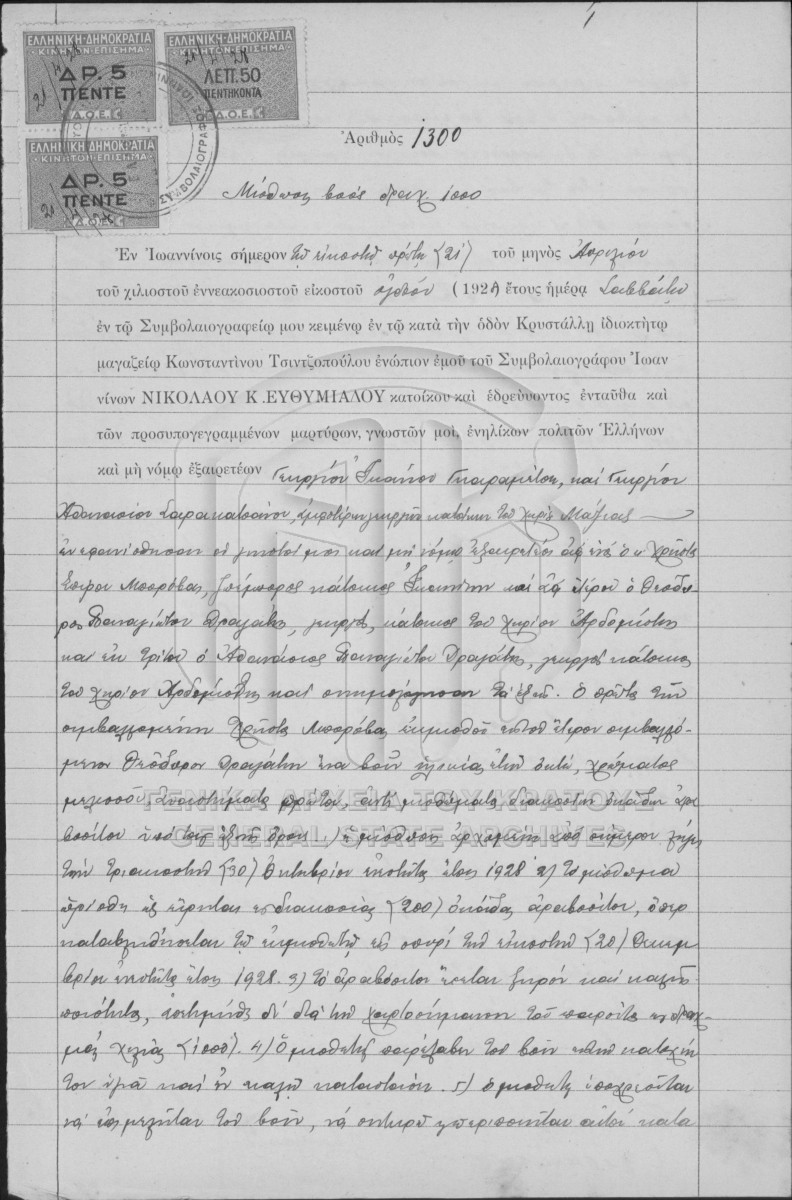 ΕΛΛΗΝΙΚΗ ΔΗΜΟΚΡΑΤΙΑ
ΚΙΝΗΤΟΝ ΕΠΙΣΗΜΑ
ΔΡ. 5
ΠΕΝΤΕ
Δ.Ο.Ε.
ΕΛΛΗΝΙΚΗ ΔΗΜΟΚΡΑΤΙΑ
ΚΙΝΗΤΟΝ ΕΠΙΣΗΜΑ
ΛΕΠ. 50
ΠΕΝΤΗΚΟΝΤΑ
Δ.Ο.Ε.
ΕΛΛΗΝΙΚΗ ΔΗΜΟΚΡΑΤΙΑ
ΚΙΝΗΤΟΝ ΕΠΙΣΗΜΑ
ΔΡ. 5
ΠΕΝΤΕ
Δ.Ο.Ε.
ΣΥΜΒΟΛΑΙΟΓΡΑΦΟΣ
Ἀριθμὸς 1300
Μίσθωσις βοός δραχ. 1000
Ἐν Ἰωαννίνοις σήμερον τῇ εἰκοστῇ πρώτῃ (21) τοῦ μηνὸς Ἀπριλίου
τοῦ χιλιοστοῦ ἐννεακοσιοστοῦ εἰκοστοῦ ὀγδόου (1928) ἔτους ἡμέρᾳ Σαββάτῳ
ἐν τῷ Συμβολαιογραφείῳ μου κειμένῳ ἐν τῷ κατὰ τὴν ὁδὸν Κρυστάλλη ἰδιοκτήτῳ
μαγαζείῳ Κωνσταντίνου Τσιντζοπούλου ἐνώπιον ἐμοῦ τοῦ Συμβολαιογράφου Ἰωαν
νίνων ΝΙΚΟΛΑΟΥ Κ. ΕΥΘΥΜΙΑΔΟΥ κατοίκου καὶ ἑδρεύοντος ἐνταῦθα καὶ
τῶν προσυπογεγραμμένων μαρτύρων, γνωστῶν μοι, ἐνηλίκων πολιτῶν Ἑλλήνων
καὶ μὴ νόμῳ ἐξαιρετέων Γεωργίου Ἰωάννου καὶ Γεωργίου
Ἀθανασίου Σαρακατσάνου, ἀμφοτέρων γεωργῶν κατοίκων τοῦ χωρίου
ἐνεφανίσθησαν οἱ γνωστοί μοι καὶ μὴ νόμῳ ἐξαιρετέοι ἀφ' ἑνὸς ὁ κ. Χρῆστος
Σπύρου Μπορόβας, ζωέμπορος κάτοικος Ἰωαννίνων καὶ ἀφ' ἑτέρου ὁ Θεόδω
ρος Παναγιώτου Δραγάτης, γεωργός, κάτοικος τοῦ χωρίου Ἀρδομίστης
καὶ ἐκ τρίτου ὁ Ἀθανάσιος Παναγιώτου Δραγάτης, γεωργός κάτοικος
τοῦ χωρίου Ἀρδομίστης καὶ συνωμολόγησαν τὰ ἑξῆς. Ὁ πρῶτος τῶν
συμβαλλομένων Χρῆστος Μπορόβας ἐκμισθοῖ εἰς τὸν ἕτερον συμβαλλό
μενον Θεόδωρον Δραγάτην ἕνα βοῦν ἡλικίας ἐτῶν ὀκτώ, χρώματος
ἀντὶ μισθώματος διακοσίων ὀκάδων ἀρα
βοσίτου ὑπὸ τοὺς ἑξῆς ὅρους 1) ἡ μίσθωσις ἀρχομένη ἀπὸ σήμερον λήγει
τὴν τριακοστὴν (30) Ὀκτωβρίου ἐνεστῶτος ἔτους 1928 2) Τὸ μίσθωμα
ὡρίσθη ὡς εἴρηται εἰς διακοσίας (200) ὀκάδας ἀραβοσίτου, ὅπερ
καταβληθήσεται τῷ ἐκμισθωτῇ τὴν εἰκοστὴν (20) Δεκεμ
βρίου ἐνεστῶτος ἔτους 1928. 3) Τὸ ἀραβόσιτον ἔσεται ξηρὸν καὶ καλῆς
ποιότητος, ἐκτιμηθὲν δὲ διὰ τὴν χαρτοσήμανσιν τοῦ παρόντος εἰς δραχ
μὰς χιλίας (1000). 4) Ὁ μισθωτὴς παρέλαβε τὸν βοῦν εἰς τὴν κατοχήν
του ὑγιᾶ καὶ ἐν καλῇ καταστάσει. 5) ὁ μισθωτὴς ὑποχρεοῦται
νὰ ἐπιμελῆται τοῦ βοός, νὰ περιποιῆται αὐτὸν κατὰ
ΓΕΝΙΚΑ ΑΡΧΕΙΑ ΤΟΥ ΚΡΑΤΟΥΣ
GENERAL STATE ARCHIVES